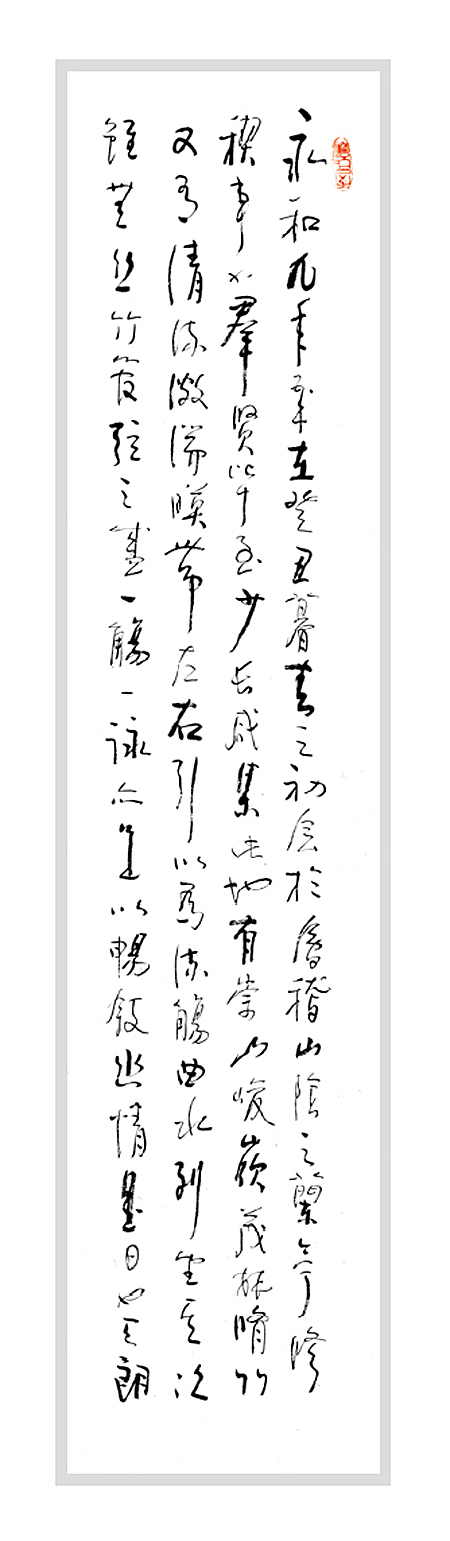 永和九年歲在癸丑暮春之初会於會稽山陰之蘭亭脩
禊事也羣賢畢至少長咸集此地有崇山峻嶺茂林脩竹
又有清流激湍暎帶左右引以為流觴曲水列坐其次
雖無絲竹管弦之盛一觴一詠亦足以暢叙幽情是日也天朗